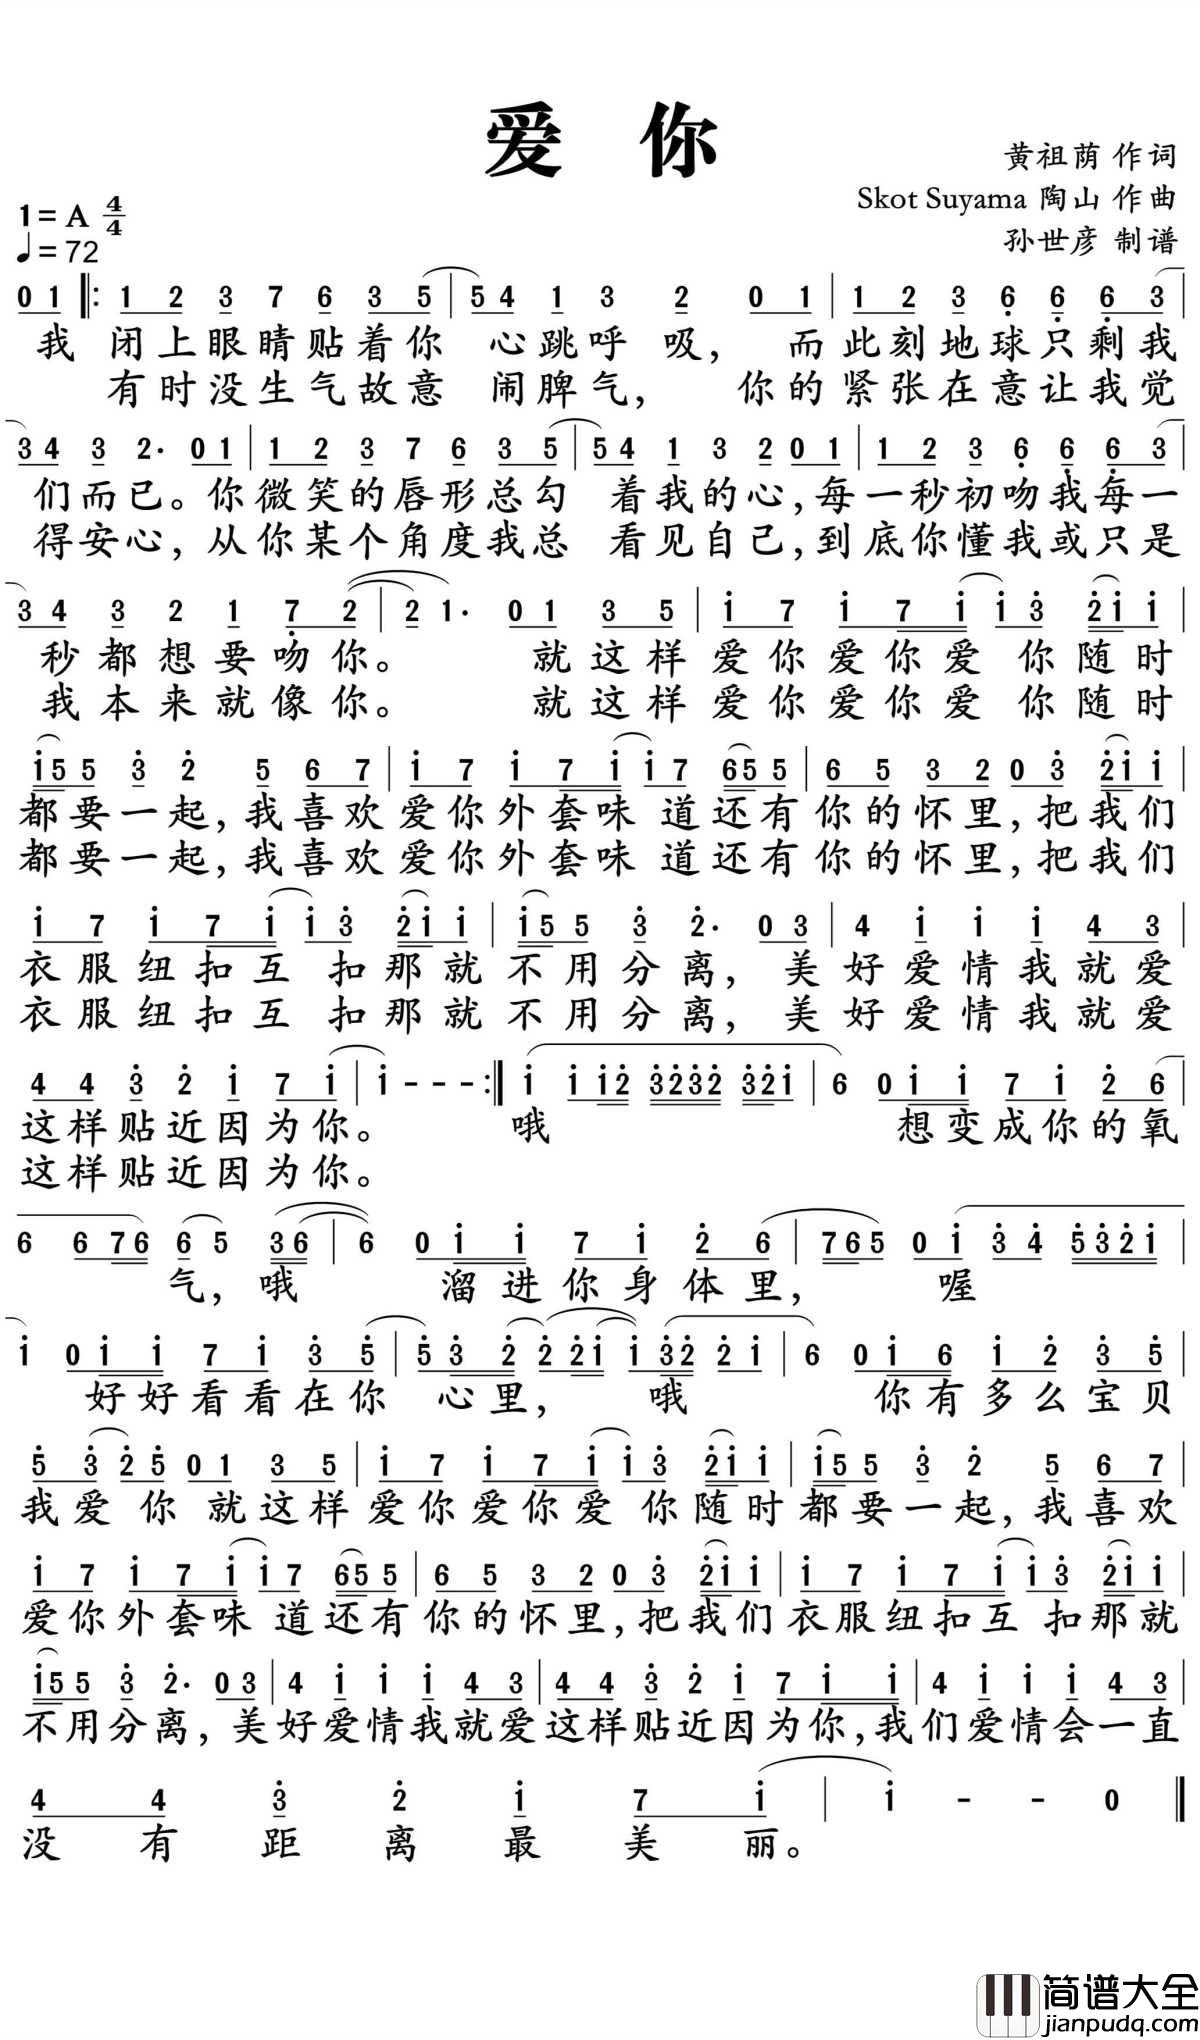 爱 你
黄祖荫 作词
Skot Suyama 陶山 作曲
孙世彦 制谱
1=A 4/4
♩=72
0 1 ‖: 1 2 3 7 6 3 5 | 5 4 1 3 2 0 1 | 1 2 3 6̣ 6̣ 6̣ 3 |
我 闭上眼睛贴着你 心跳呼 吸， 而此刻地球只剩我
有时没生气故意 闹脾气， 你的紧张在意让我觉
3 4 3 2· 0 1 | 1 2 3 7 6 3 5 | 5 4 1 3 2 0 1 | 1 2 3 6̣ 6̣ 6̣ 3 |
们而已。你微笑的唇形总勾 着我的心，每一秒初吻我每一
得安心，从你某个角度我总 看见自己，到底你懂我或只是
3 4 3 2 1 7̣ 2 | 2 1· 0 1 3 5 | i 7 i 7 i i 3̇ 2̇ i i |
秒都想要吻你。 就这样爱你爱你爱 你随时
我本来就像你。 就这样爱你爱你爱 你随时
i 5 5 3̇ 2̇ 5 6 7 | i 7 i 7 i i 7 6 5 5 | 6 5 3 2 0 3̇ 2̇ i i |
都要一起，我喜欢爱你外套味 道还有你的怀里，把我们
都要一起，我喜欢爱你外套味 道还有你的怀里，把我们
i 7 i 7 i i 3̇ 2̇ i i | i 5 5 3̇ 2̇· 0 3 | 4 i i i 4 3 |
衣服纽扣互 扣那就不用分离，美好爱情我就爱
衣服纽扣互 扣那就不用分离，美好爱情我就爱
4 4 3̇ 2̇ i 7 i | i - - - :‖ i i i 2̇ 3̇ 2̇ 3̇ 2̇ 3̇ 2̇ i | 6 0 i i 7 i 2̇ 6 |
这样贴近因为你。 哦 想变成你的氧
这样贴近因为你。
6 6 7 6 6 5 3 6 | 6 0 i i 7 i 2̇ 6 | 7 6 5 0 i 3̇ 4̇ 5̇ 3̇ 2̇ i |
气，哦 溜进你身体里， 喔
i 0 i i 7 i 3̇ 5̇ | 5̇ 3̇ 2̇ 2̇ 2̇ i i 3̇ 2̇ 2̇ i | 6 0 i 6 i 2̇ 3̇ 5̇ |
好好看看在你 心里， 哦 你有多么宝贝
5̇ 3̇ 2̇ 5̇ 0 1 3 5 | i 7 i 7 i i 3̇ 2̇ i i | i 5 5 3̇ 2̇ 5 6 7 |
我爱 你 就这样爱你爱你爱 你随时都要一起，我喜欢
i 7 i 7 i i 7 6 5 5 | 6 5 3 2 0 3̇ 2̇ i i | i 7 i 7 i i 3̇ 2̇ i i |
爱你外套味 道还有你的怀里，把我们衣服纽扣互 扣那就
i 5 5 3̇ 2̇· 0 3 | 4 i i i 4 3 | 4 4 3̇ 2̇ i 7 i i | 4 i i i 4 3 |
不用分离，美好爱情我就爱这样贴近因为你，我们爱情会一直
4 4 3̇ 2̇ i 7 i | i - - 0 ‖
没有距离最美丽。
简谱大全
jianpudq.com